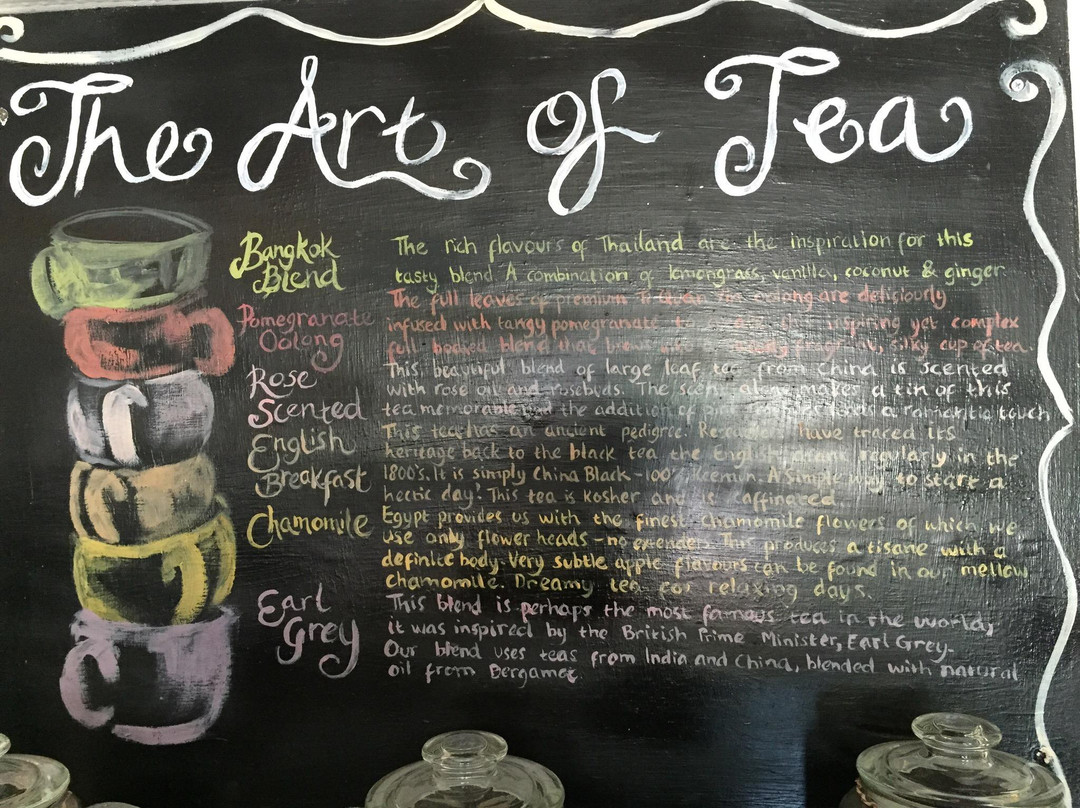 The Art of Tea
Bangkok
Blend
The rich flavours of Thailand are the inspiration for this
tasty blend. A combination of lemongrass, vanilla, coconut & ginger
Pomegranate
Oolong
The full leaves of premium Ti Quan oolong are deliciously
infused with tangy pomegranate inspiring yet complex
full bodied blend that brews silky cup of tea.
Rose
Scented
This, beautiful blend of large leaf tea from China is scented
with rose oil and rosebuds. The scent alone makes a tin of this
tea memorable and the addition of a romantic touch
English
Breakfast
This tea has an ancient pedigree. have traced its
heritage back to the black tea the English drank regularly in the
1800's. It is simply China Black Keemun. A simple way to start a
hectic day! This tea is kosher and is caffinated
Chamomile
Egypt provides us with the finest chamomile flowers of which we
use only flower heads - no extender. This produces a tisane with a
definite body. Very subtle apple flavours can be found in our mellow
chamomile. Dreamy tea for relaxing days.
Earl
Grey
This blend is perhaps the most famous tea in the world,
it was inspired by the British Prime Minister, Earl Grey.
Our blend uses teas from India and China, blended with natural
oil from Bergamot.